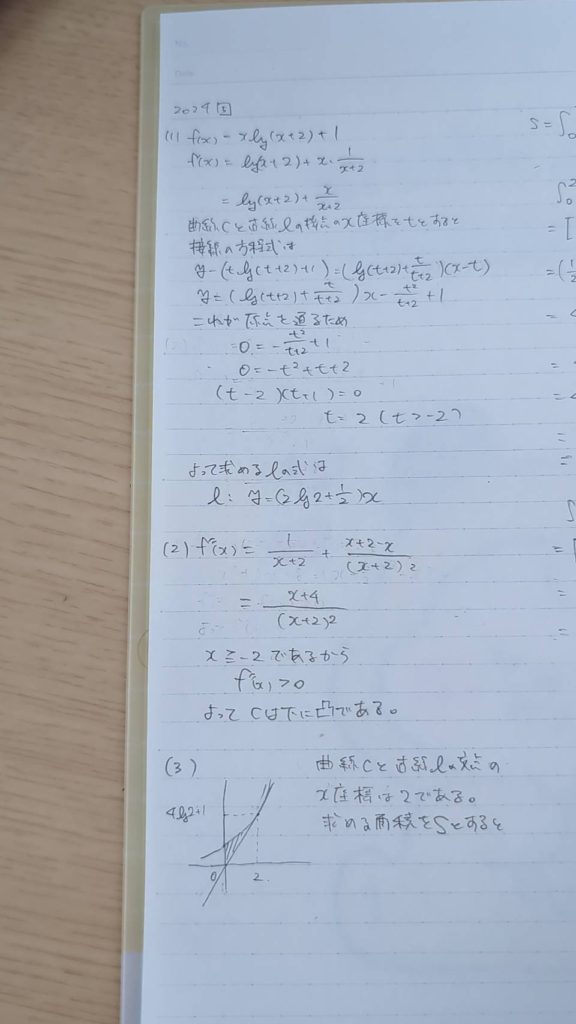 No.
Date
2024 5
(1) f(x) = x log(x+2) + 1
f'(x) = log(x+2) + x・1/(x+2)
= log(x+2) + x/(x+2)
曲線Cと直線lの接点のx座標をtとすると
接線の方程式は
y - (t log(t+2)+1) = (log(t+2) + t/(t+2))(x-t)
y = (log(t+2) + t/(t+2))x - t²/(t+2) + 1
これが原点を通るため
0 = -t²/(t+2) + 1
0 = -t² + t + 2
(t-2)(t+1) = 0
t = 2 (t > -2)
よって求めるlの式は
l: y = (2 log 2 + 1/2)x
(2) f''(x) = 1/(x+2) + (x+2-x)/(x+2)²
= (x+4)/(x+2)²
x ≧ -2 であるから
f''(x) > 0
よって Cは下に凸である。
(3) 曲線Cと直線lの交点の
x座標は2である。
求める面積をSとすると
4log2+1
0 2
S = ∫₀
∫₀²
= [
= (1/2
=
=
=
=
=
∫
= [
=
=